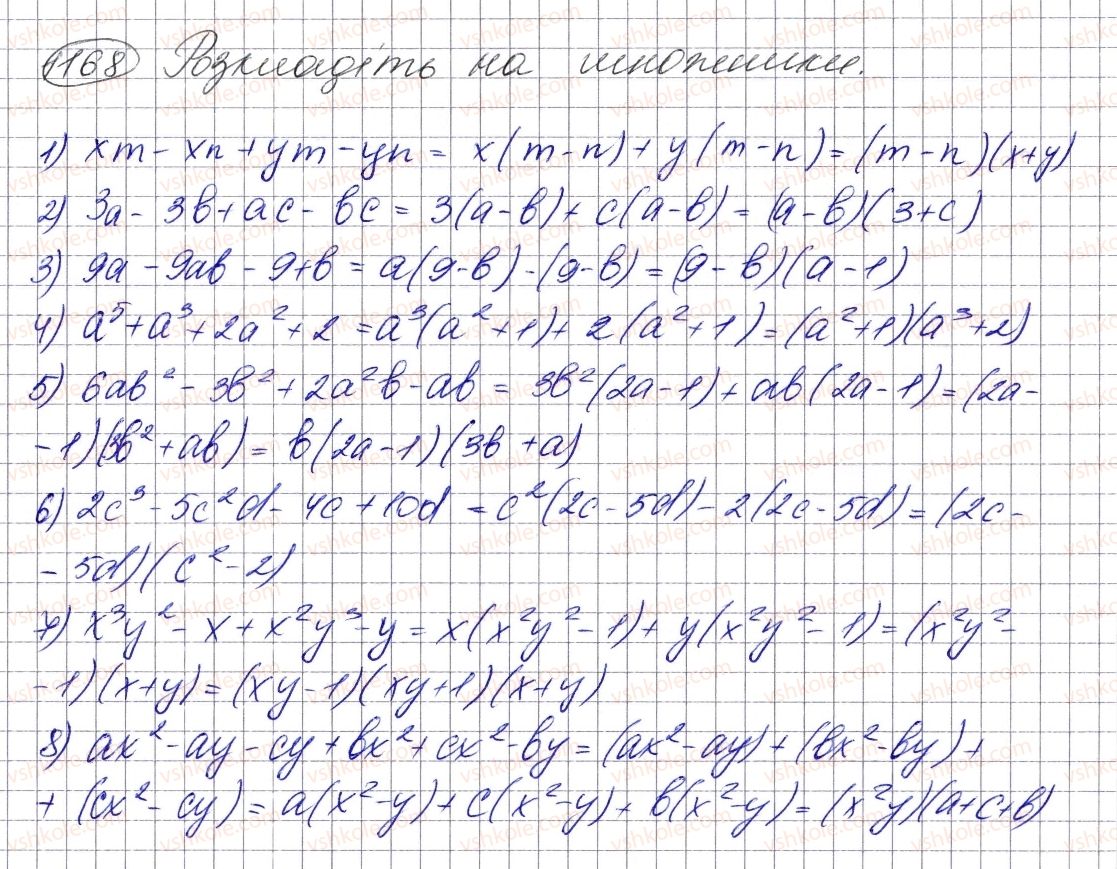 1168 Розкладіть на множники.
1) xm - xn + ym - yn = x(m-n) + y(m-n) = (m-n)(x+y)
2) 3a - 3в + ac - вc = 3(a-в) + c(a-в) = (a-в)(3+c)
3) 9a - 9aв - 9+в = a(9-в) - (9-в) = (9-в)(a-1)
4) a⁵ + a³ + 2a² + 2 = a³(a²+1) + 2(a²+1) = (a²+1)(a³+2)
5) 6aв² - 3в² + 2a²в - aв = 3в²(2a-1) + aв(2a-1) = (2a-
-1)(3в²+aв) = в(2a-1)(3в+a)
6) 2c³ - 5c²d - 4c + 10d = c²(2c-5d) - 2(2c-5d) = (2c-
-5d)(c²-2)
7) x³y² - x + x²y³ - y = x(x²y²-1) + y(x²y²-1) = (x²y²-
-1)(x+y) = (xy-1)(xy+1)(x+y)
8) ax² - ay - cy + вx² + cx² - вy = (ax²-ay) + (вx²-вy) +
+ (cx²-cy) = a(x²-y) + c(x²-y) + в(x²-y) = (x²y)(a+c+в)